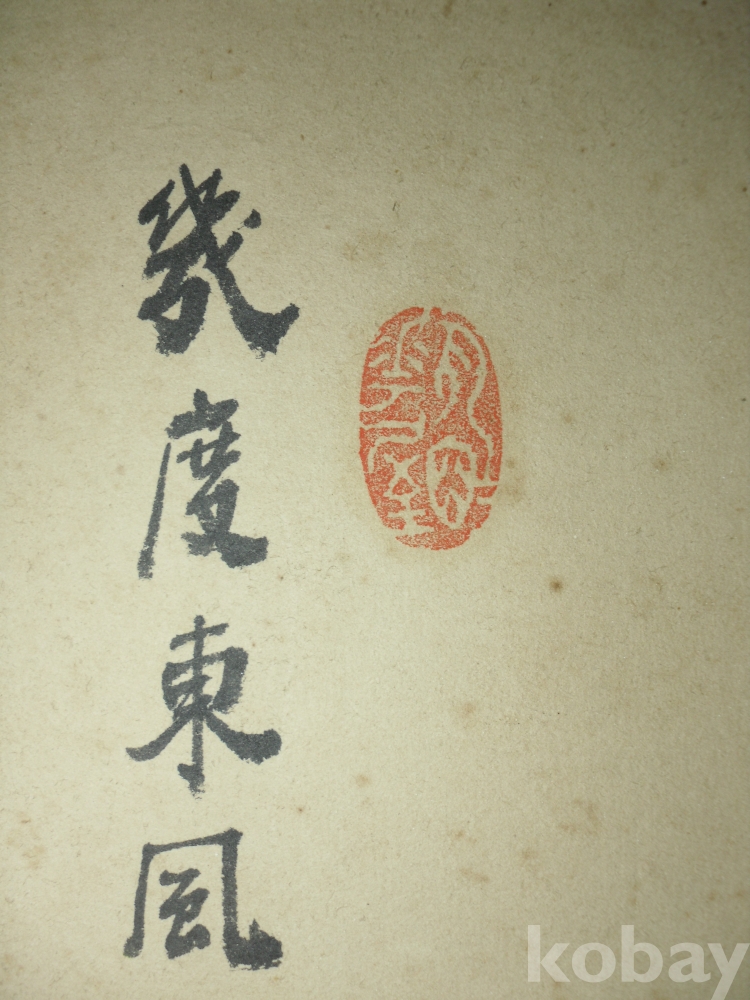 幾度東風
kobay